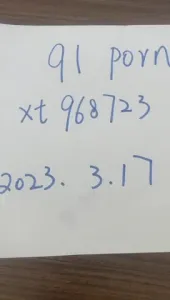 91 porn
xt 968723
2023. 3.17